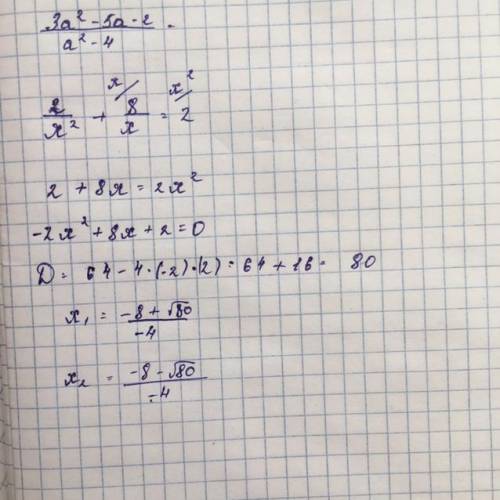 3a² - 5a - 2 / a² - 4 .
2/x² + 8/x = 2
x/ x²/
2 + 8x = 2x²
-2x² + 8x + 2 = 0
D = 64 - 4·(-2)·(2) = 64 + 16 = 80
x₁ = -8 + √80 / -4
x₂ = -8 - √80 / -4